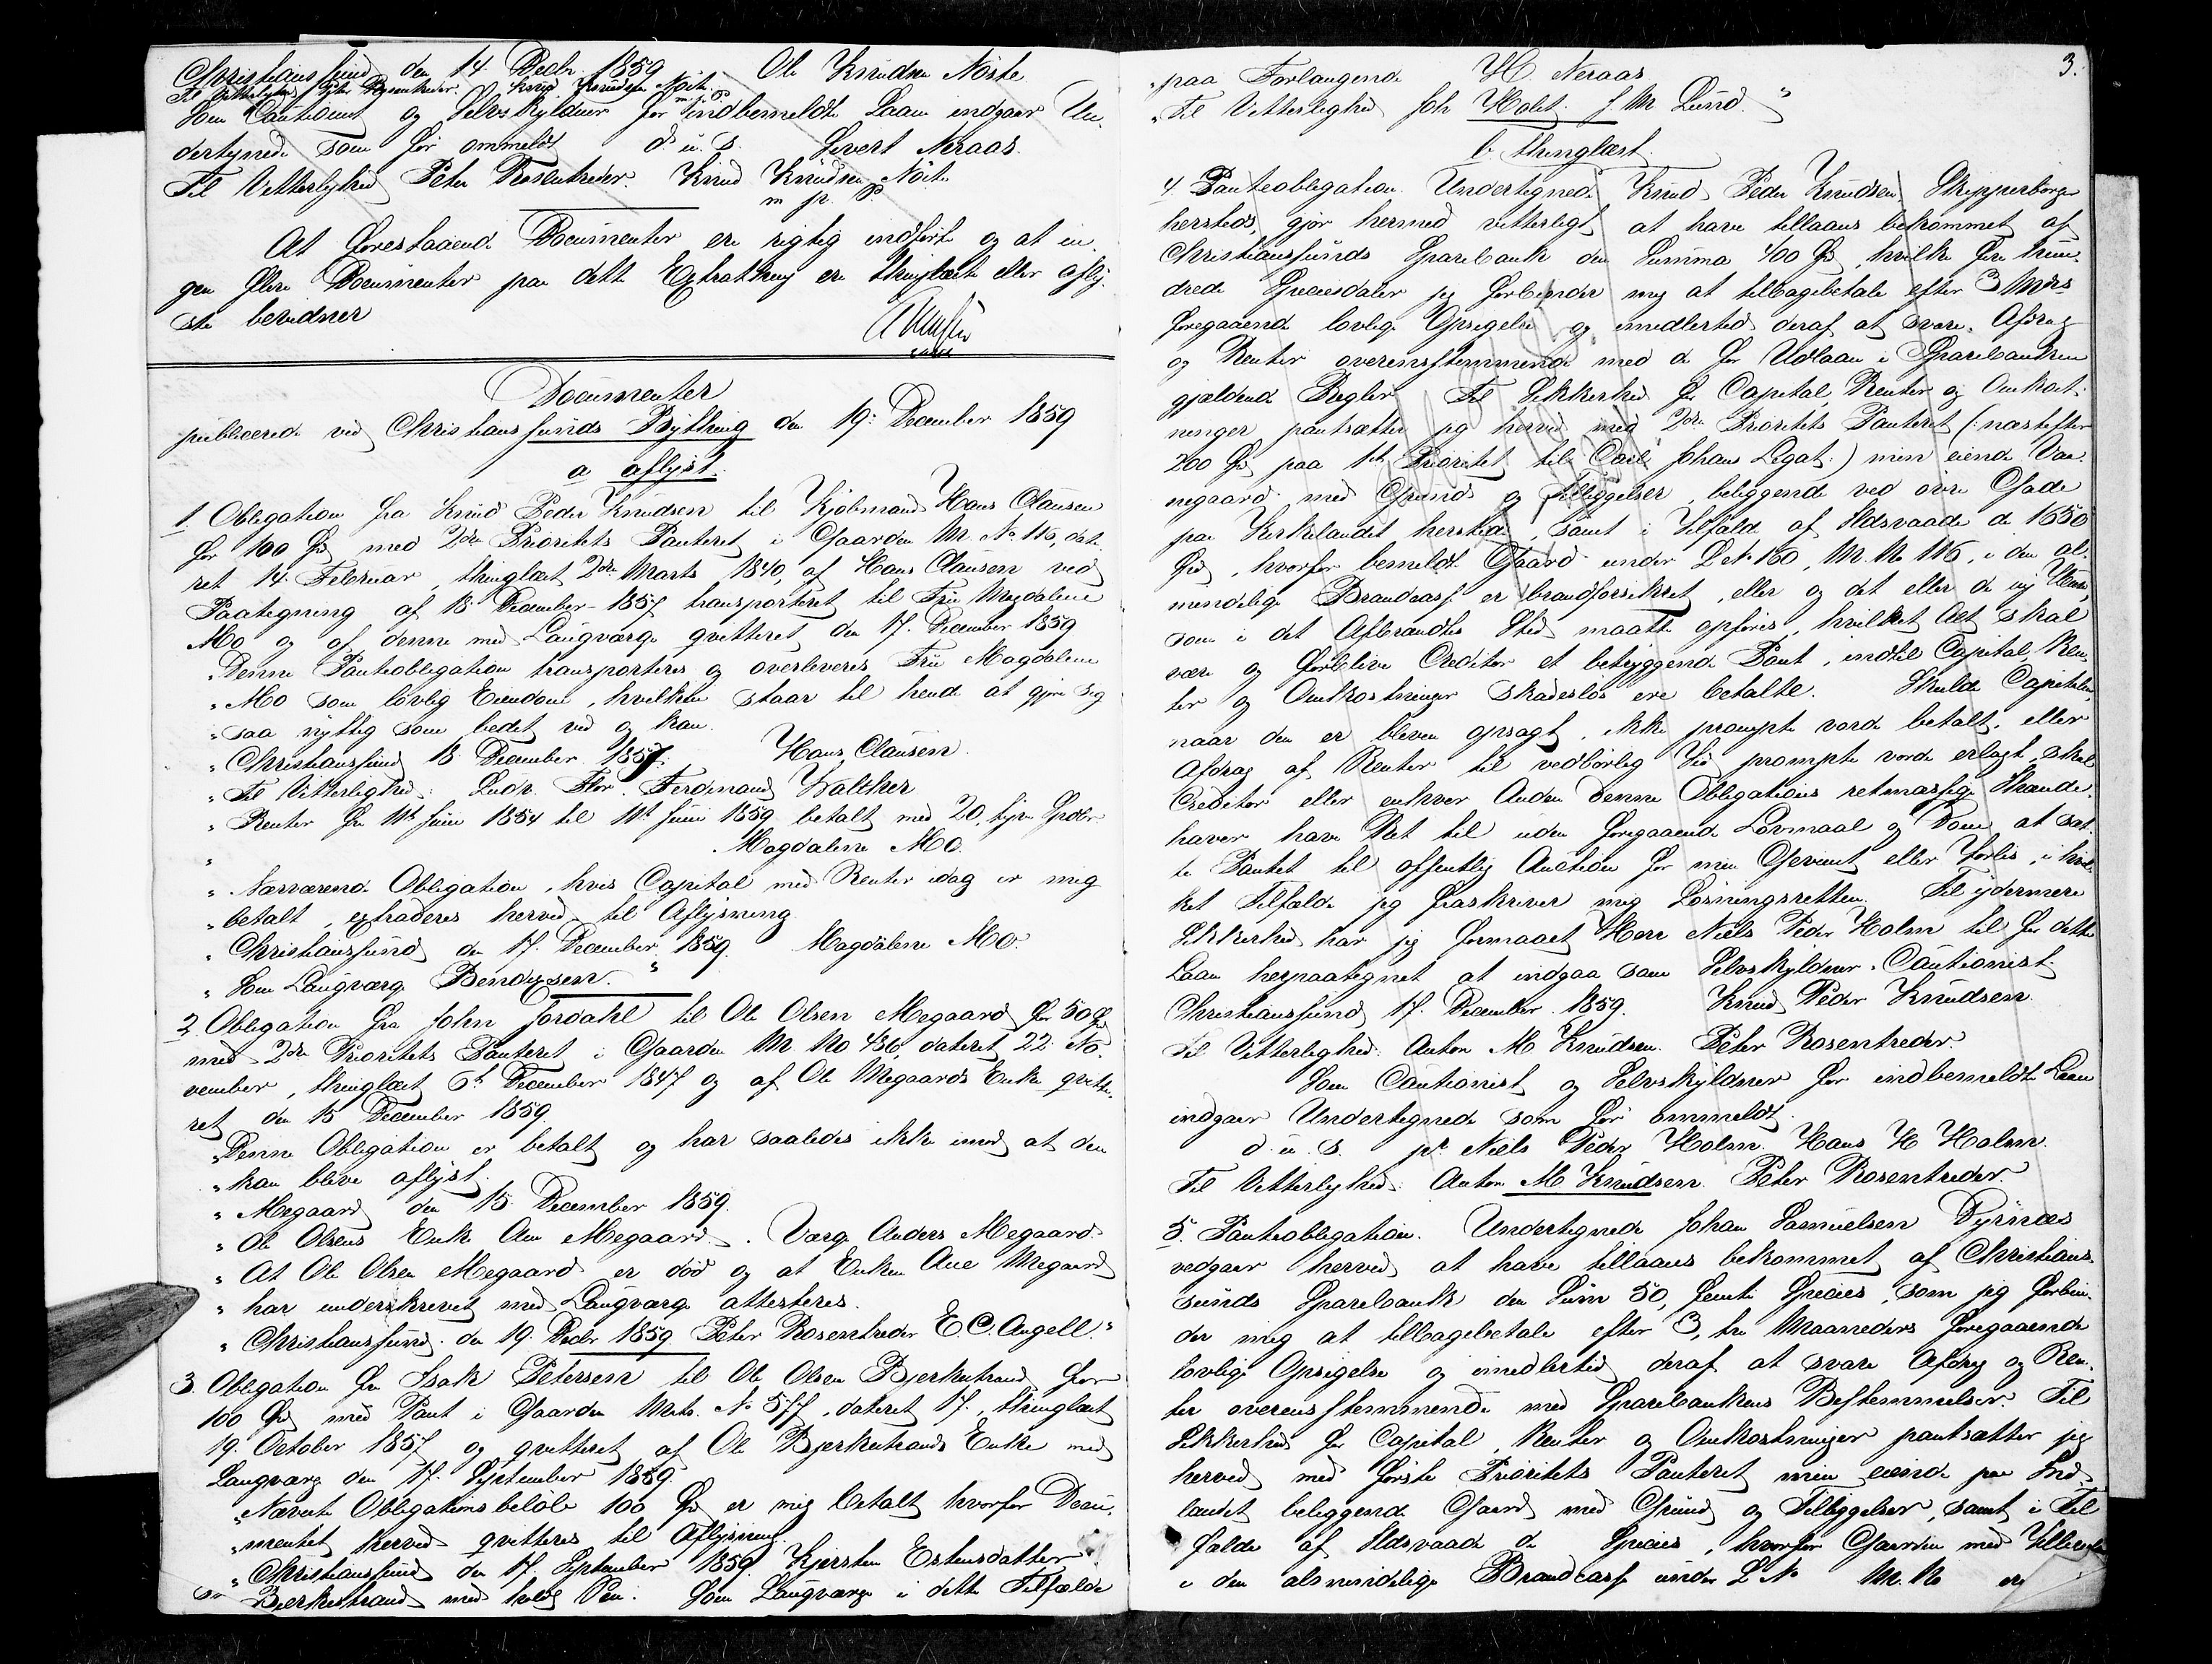 Christiansund den 14. Decbr. 1859 Ole Knudsen Nöste
Til Vitterlighed Peter Rosentreder. Knud Knudsen Nöste
m. p. P.
Som Cautionist og Selvskyldner for indbemeldte Laan indgaar Un-
dertegnede som før ommeldt d. u. s. Sivert Neraas.
Til Vitterlighed Peter Rosentreder. Knud Knudsen Nöste
m. p. P.
At forestaaende Documenter ere rigtig indførte og at in-
gen flere Documenter paa dette Extrathing ere thinglæste eller afly-
ste bevidner
Documenter
publicerede ved Christiansunds Bything den 19. December 1859
a aflyst.
1. Obligation fra Knud Peder Knudsen til Kjøbmand Hans Clausen
for 100 Spd med 2den Prioritets Panteret i Gaarden M. No. 116, date-
ret 14. Februar, thinglæst 2den Marts 1840, af Hans Clausen ved
Paategning af 18. December 1857 transporteret til Fru Magdalene
Mo og af denne med Laugværge qvitteret den 17. December 1859
"Denne Panteobligation transporteres og overleveres Fru Magdalene
"Mo som lovlig Eiendom, hvilken staar til hende at gjøre sig
"saa nyttig som bedst ved og kan.
"Christiansund 18. December 1857. Hans Clausen.
"Til Vitterlighed: Ludv. Flor. Ferdinand Walther
"Renter fra 11te Juni 1854 til 11te Juni 1859 betalt med 20, tyve Spdlr
" Magdalene Mo.
"Nærværende Obligation, hvis Capital med Renter idag er mig
"betalt, extraderes herved til Aflysning
"Christiansund den 17. December 1859. Magdalene Mo.
"Som Laugværge Bendixsen."
2. Obligation fra John Jordahl til Ole Olsen Megaard for 50 Spd
med 2den Prioritets Panteret i Gaarden M No 436, dateret 22. No-
vember, thinglæst 6te December 1847 og af Ole Megaards Enke qvitte-
ret den 15 December 1859.
"Denne Obligation er betalt og har saaledes ikke imod at den
"kan blive aflyst.
"Megaard den 15 December 1859.
"Ole Olsens Enke Ane Megaard. Værge Anders Megaard.
"At Ole Olsen Megaard er død og at Enken Ane Megaard
"har underskrevet med Laugværge attesteres.
"Christiansund den 19. Decbr 1859 Peter Rosentreder E. C. Angell."
3. Obligation fra Isak Petersen til Ole Olsen Bjerkestrand for
100 Spd med Pant i Gaarden Matr. No 577, dateret 17., thinglæst
19. October 1857 og qvitteret af Ole Bjerkestrands Enke med
Laugværge den 17. September 1859.
"Nævnte Obligationsbeløb 100 Spd er mig betalt hvorfor Docu-
"mentet herved qvitteres til Aflysning.
"Christiansund den 17. September 1859. Kjersten Estensdatter
Bjerkestrand med holdt Pen. Som Laugværge i dette Tilfælde
3.
"paa Forlangende H. Neraas
"Til Vitterlighed Joh Holst. J M Lund."
b. thinglæst.
4. Panteobligation. Undertegnede Knud Peder Knudsen, Skipperborger
hersteds, gjør hermed vitterligt at have tillaans bekommet af
Christiansunds Sparebank den Summa 400 Spd, hvilke fire hun-
drede Speciesdaler jeg forbinder mig at tilbagebetale efter 3 Mdrs
foregaaende lovlig Opsigelse og imedlertid deraf at svare Afdrag
og Renter overensstemmende med de for Udlaan i Sparebanken
gjældende Regler. Til Sikkerhed for Capital, Renter og Omkost-
ninger pantsætter jeg herved med 2den Prioritets Panteret (: næstefter
200 Spd paa 1ste Prioritet til Carl Johans Legat :) min eiende Vaa-
negaard med Grund og Tilliggelser, beliggende ved øvre Gade
paa Kirkelandet hersteds, samt i Tilfælde af Ildsvaade de 1550
Spd, hvorfor bemeldte Gaard under L No 160, M. No 116, i den al-
mindelige Brandcasse er brandforsikkret, eller og det eller de nye Huse,
som i det Afbrændtes Sted maatte opføres, hvilket Alt skal
være og forblive Creditor et betryggende Pant, indtil Capital, Ren-
ter og Omkostninger skadesløs ere betalte. Skulde Capitalen,
naar den er bleven opsagt, ikke prompte vorde betalt, eller
Afdrag af Renter til vedbørlig Tid prompte vorde erlagt, skal
Creditor eller enhver Anden denne Obligations retmæssige Ihænde-
haver have Ret til uden foregaaende Lovmaal og Dom at sæt-
te Pantet til offentlig Auction for min Gevinst eller Forlis, i hvil-
ket Tilfælde jeg fraskriver mig Løsningsretten. Til ydermere
Sikkerhed har jeg formaaet Herr Niels Peder Holm til for dette
Laan herpaategnet at indgaa som Selvskyldner-Cautionist.
Christiansund 17. December 1859. Knud Peder Knudsen.
Til Vitterlighed: Anton M Knudsen. Peter Rosentreder.
Som Cautionist og Selvskyldner for indbemeldte Laan
indgaar Undertegnede som før ommeldt.
d. u. s. pr Niels Peder Holm. Hans H Holm.
Til Vitterlighed: Anton M Knudsen. Peter Rosentreder.
5. Panteobligation. Undertegnede Johan Samuelsen Dyrnæs
vedgaar herved at have tillaans bekommet af Christian-
sunds Sparebank den Sum 50, femti Species, som jeg forbin-
der mig at tilbagebetale efter 3, tre Maaneders foregaaende
lovlig Opsigelse og imedlertid deraf at svare Afdrag og Ren-
ter overensstemmende med Sparebankens Bestemmelser. Til
Sikkerhed for Capital, Renter og Omkostninger pantsætter jeg
herved med første Prioritets Panteret min eiende paa Ind-
landet beliggende Gaard med Grund og Tilliggelser, samt i Til-
fælde af Ildsvaade de Species, hvorfor Gaarden med
i den almindelige Brandcasse under L No M. No er